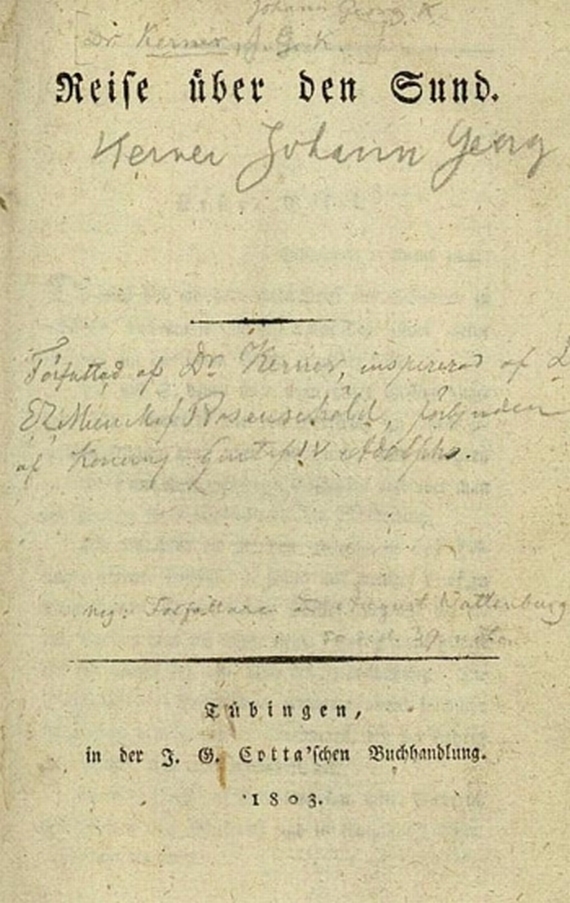 Johann Georg K.
[Dr. Kerner J. G. K.
Reise über den Sund.
Kerner Johann Georg
Författad af Dr. Kerner, inspirerad af
Rosenschold,
af Konung Gustaf IV Adolphs.
August Wattenburg
Tübingen,
in der J. G. Cotta'schen Buchhandlung.
1803.